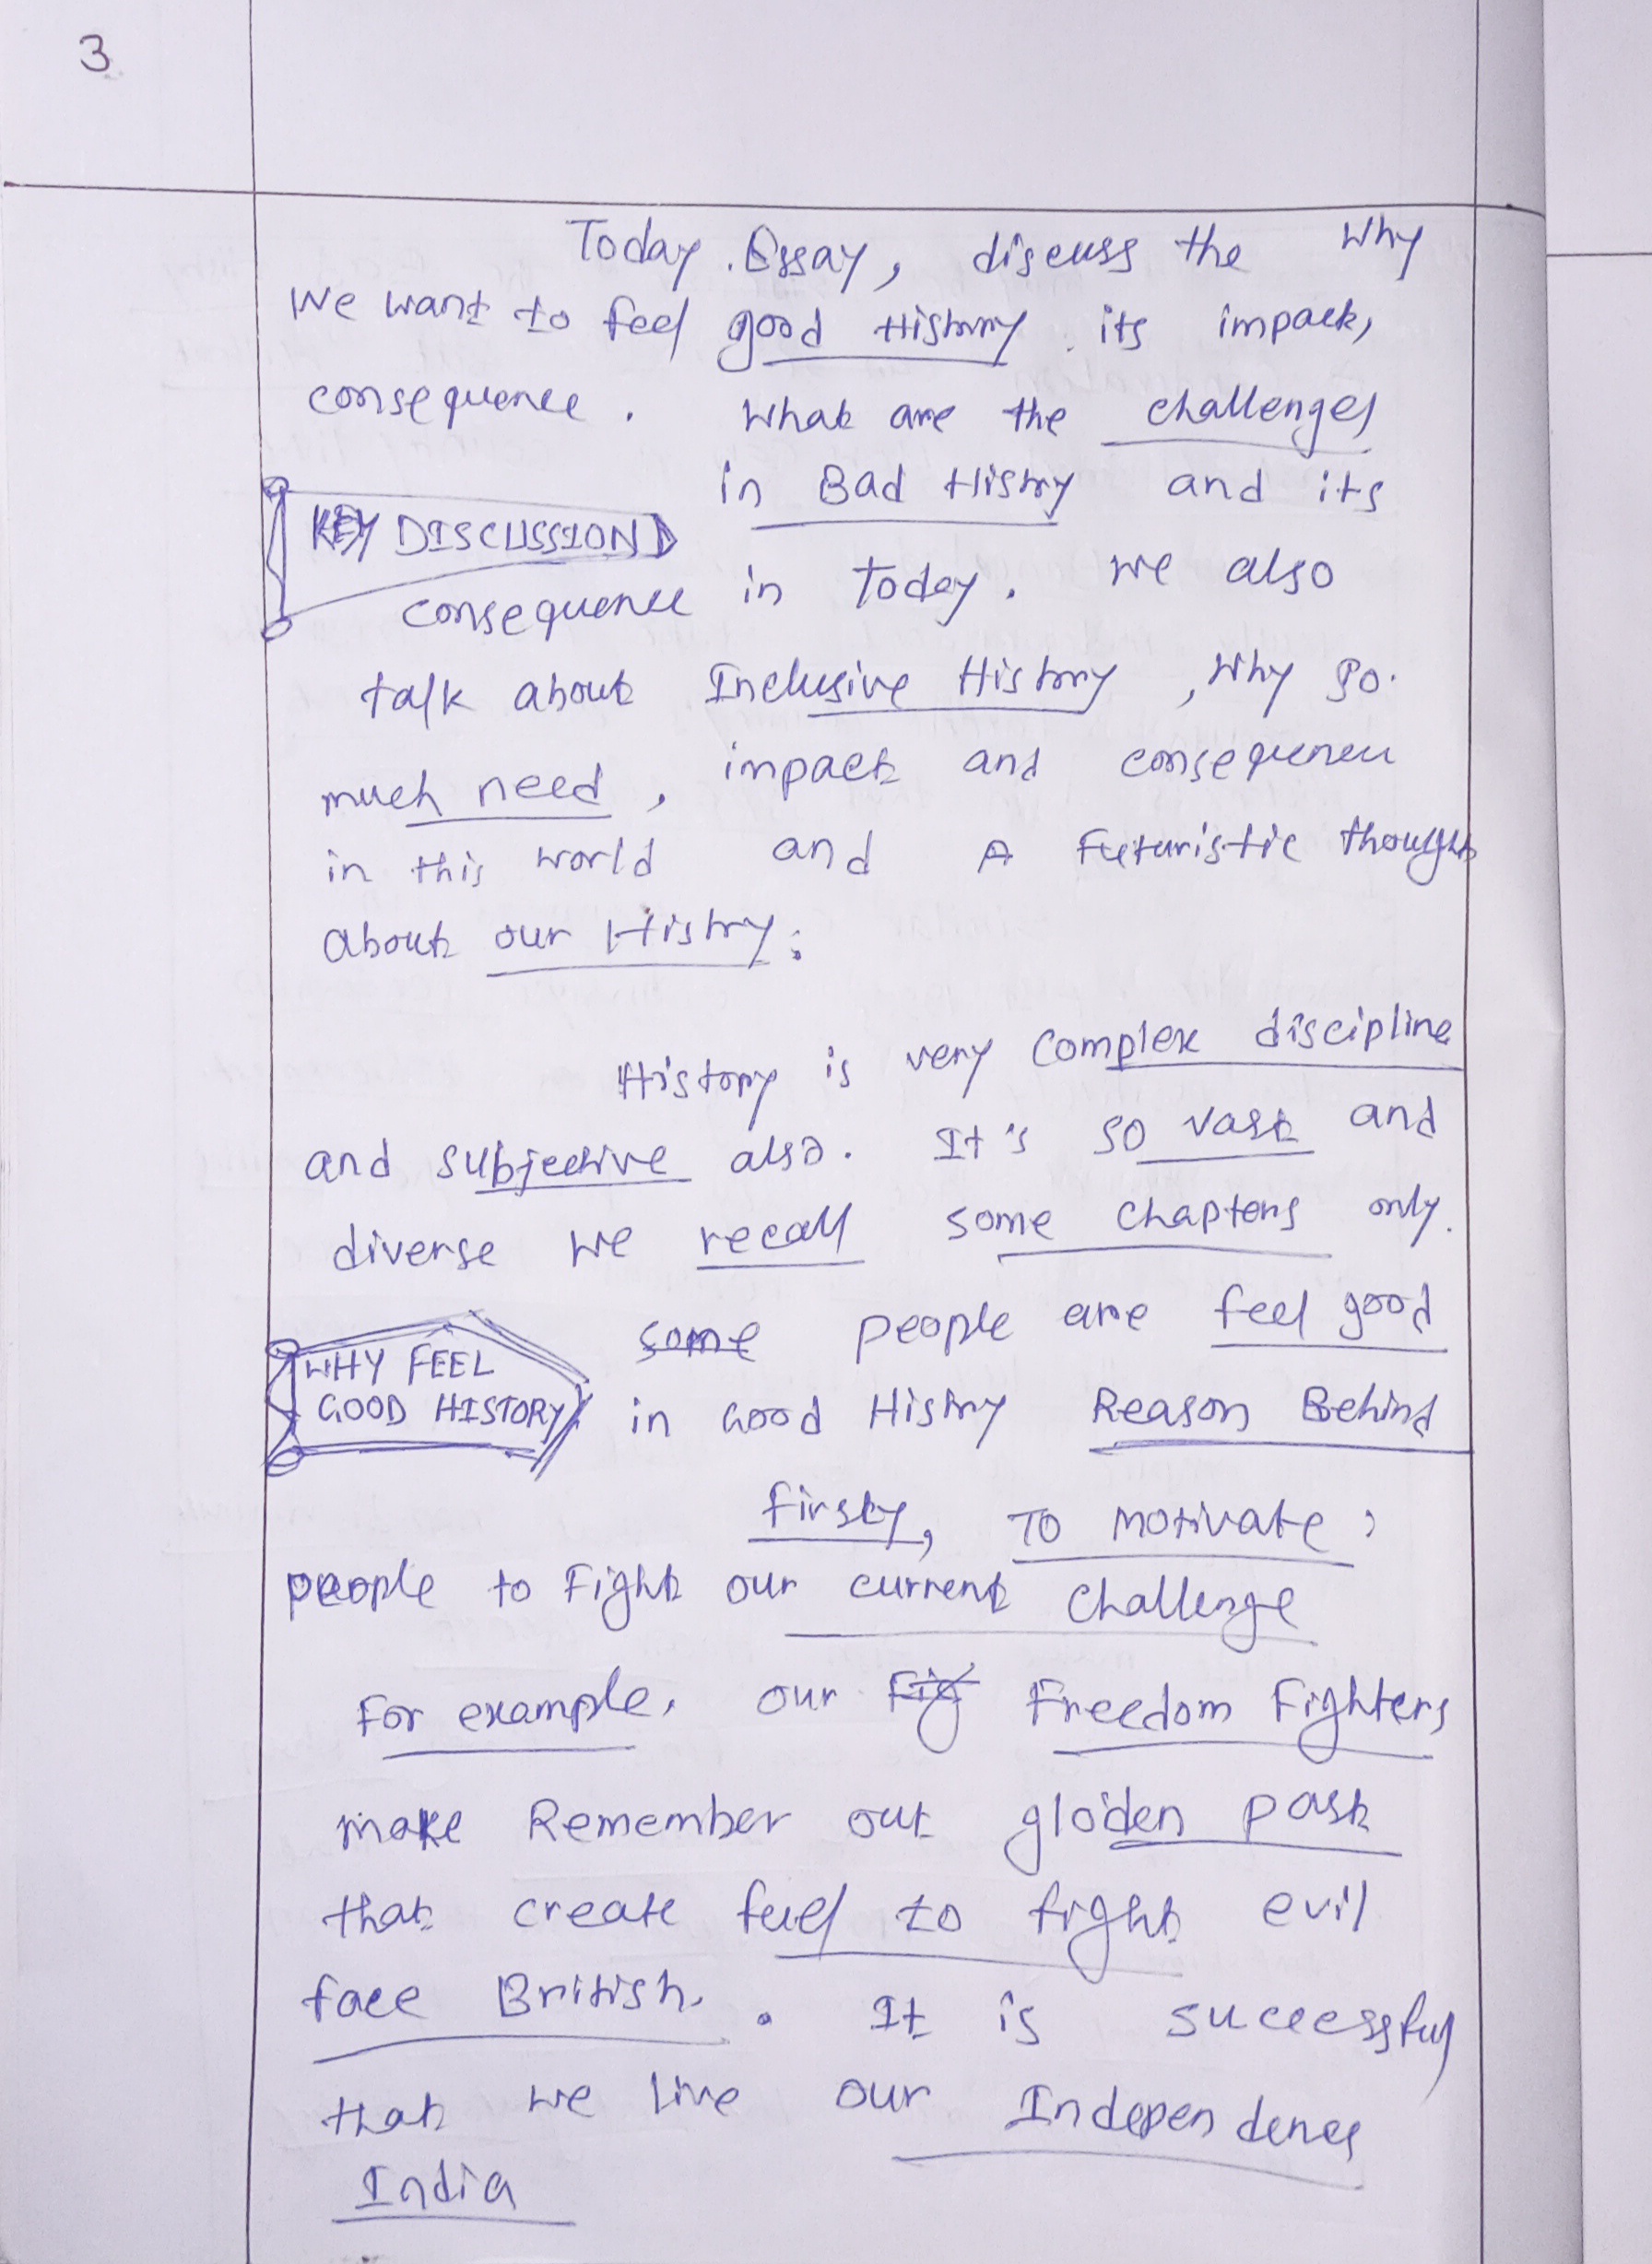 3
Today Essay, discuss the Why
We want to feel good History its impact,
consequence. What are the challenges
in Bad History and its
KEY DISCUSSION
consequence in Today. We also
talk about Inclusive History, Why so.
much need, impact and consequence
in this world and A Futuristic thought
About our History.
History is very complex discipline
and subjective also. It's so vast and
diverse we recall some chapters only.
WHY FEEL
GOOD HISTORY
some people are feel good
in Good History Reason Behind
firsty, To motivate
people to Fight our current challenge
For example, our Fig Freedom Fighters
make Remember out gloden past
that create fuel to fight evil
face British. It is successful
that we live our Independence
India